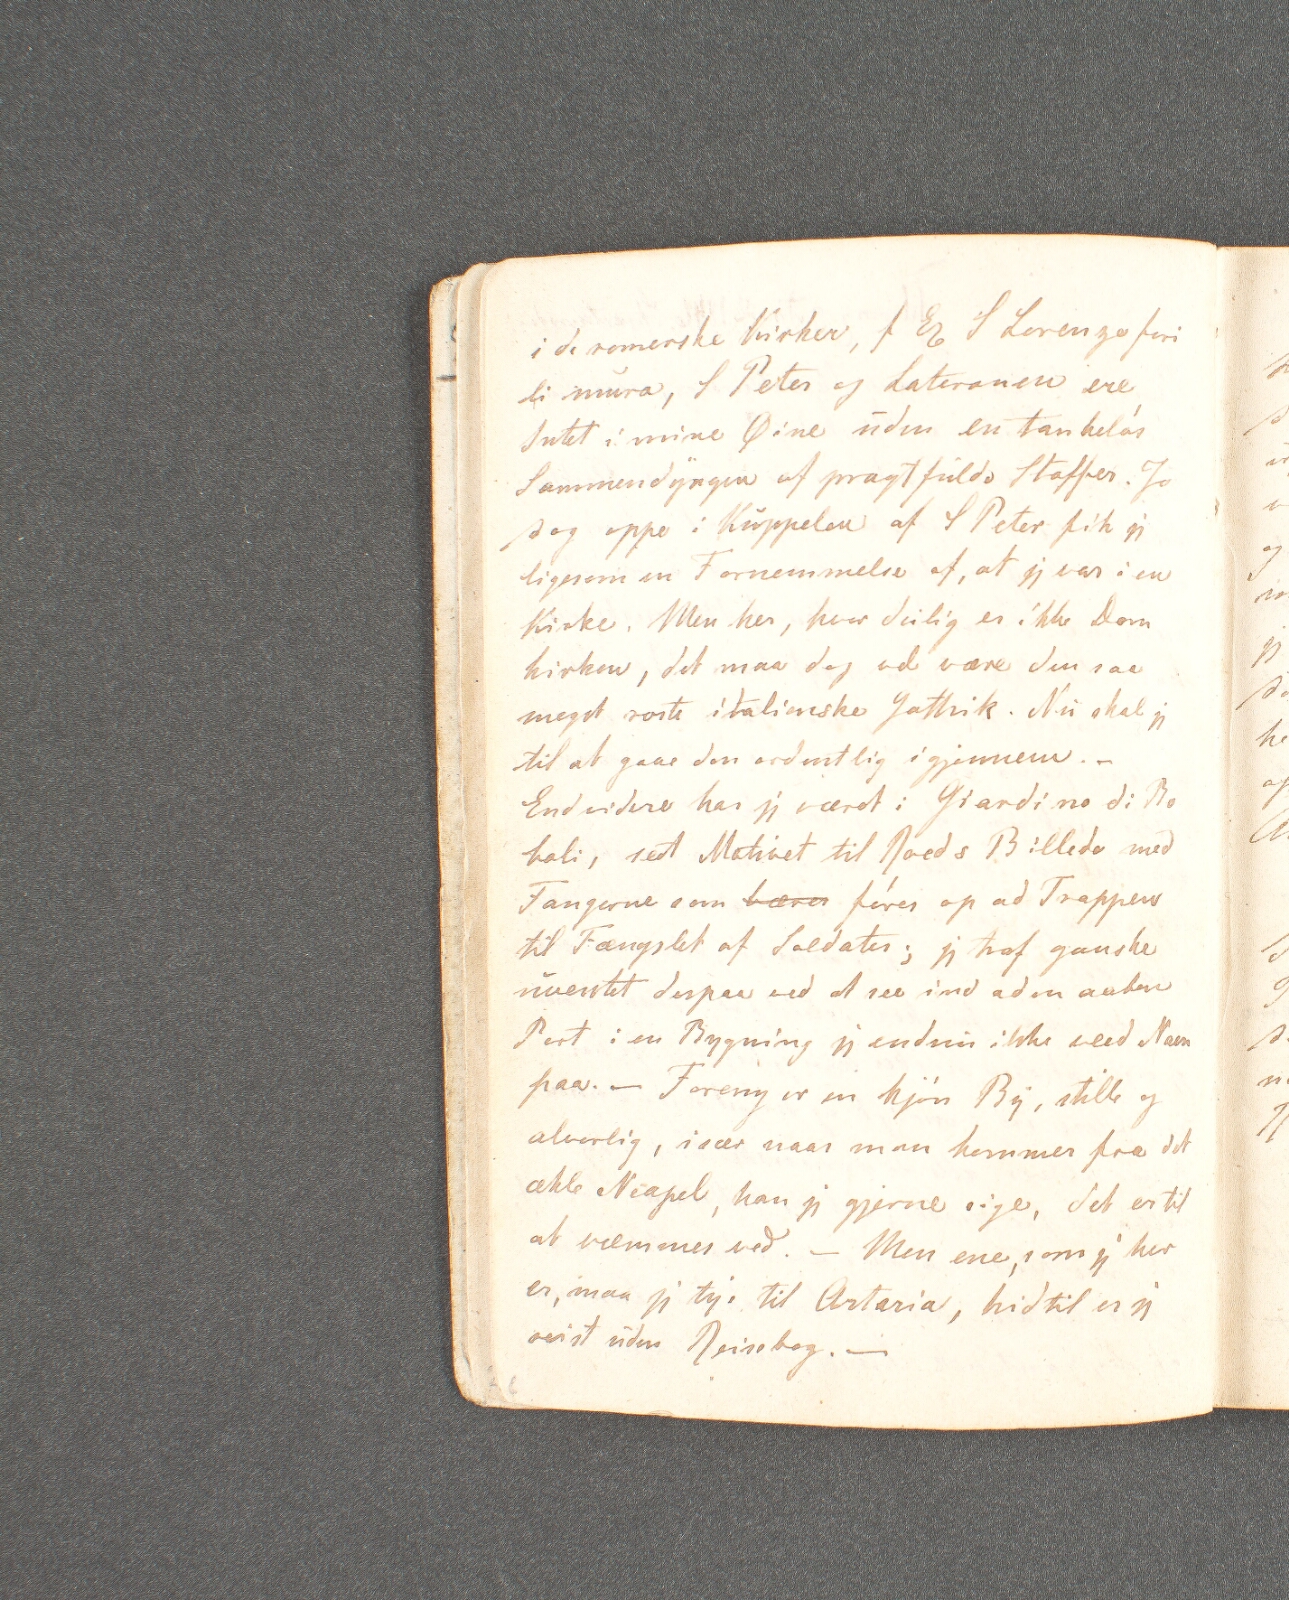 i de romerske Kirker, f Ex S Lorenzo furi
li mura, S Peter og Lateranen ere
Intet i mine Øine uden en tankeløs
Sammendyngen af pragtfulde Stoffer. Jo
dog oppe i Kuppelen af S Peter fik jeg
ligesom en Fornemmelse af, at jeg var i en
Kirke. Men her, hvor deilig er ikke Dom
kirken, det maa dog vel være den saa
meget roste italienske Gothik. Nu skal jeg
til at gaae den ordentlig igjennem. –
Endvidere har jeg været i Giardino di Bo
boli, seet Motivet til Roeds Billede med
Fangerne som bæres føres op ad Trappen
til Fængslet af Soldater; jeg traf ganske
uventet derpaa ved at see ind ad en aaben
Port i en Bygning jeg endnu ikke veed Navn
paa. – Florenz er en kjøn By, stille og
alvorlig, især naar man kommer fra det
ækle Neapel, kan jeg gjerne sige, det er til
at væmmes ved. – Men ene, som jeg her
er, maa jeg tye til Artaria, hidtil er jeg
reist uden Reisebog. –